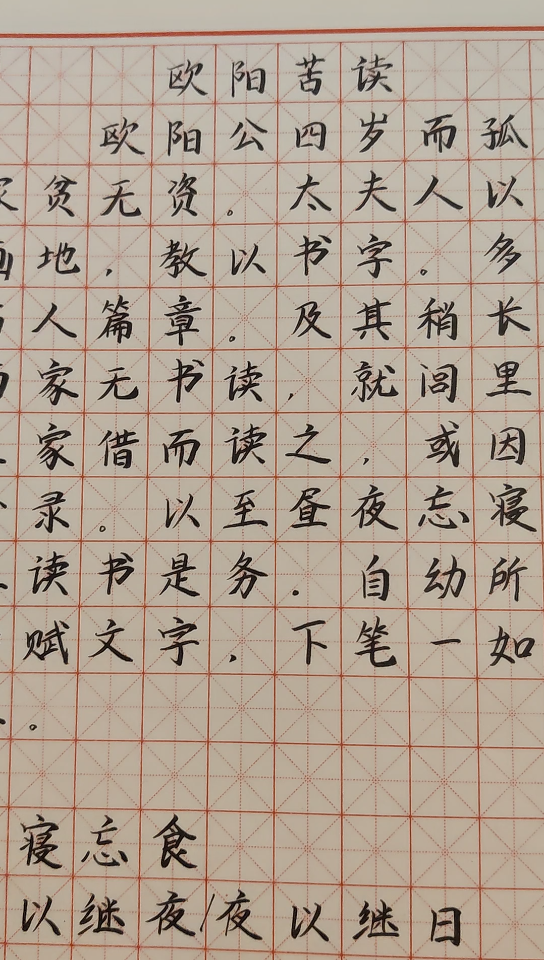 欧阳苦读
欧阳公四岁而孤
家贫无资。太夫人以
画地，教以书字。多
人篇章。及其稍长
家无书读，就闾里
家借而读之，或因
录。以至昼夜忘寝
读书是务。自幼所
赋文字，下笔一如
。
寝忘食
以继夜/夜以继日